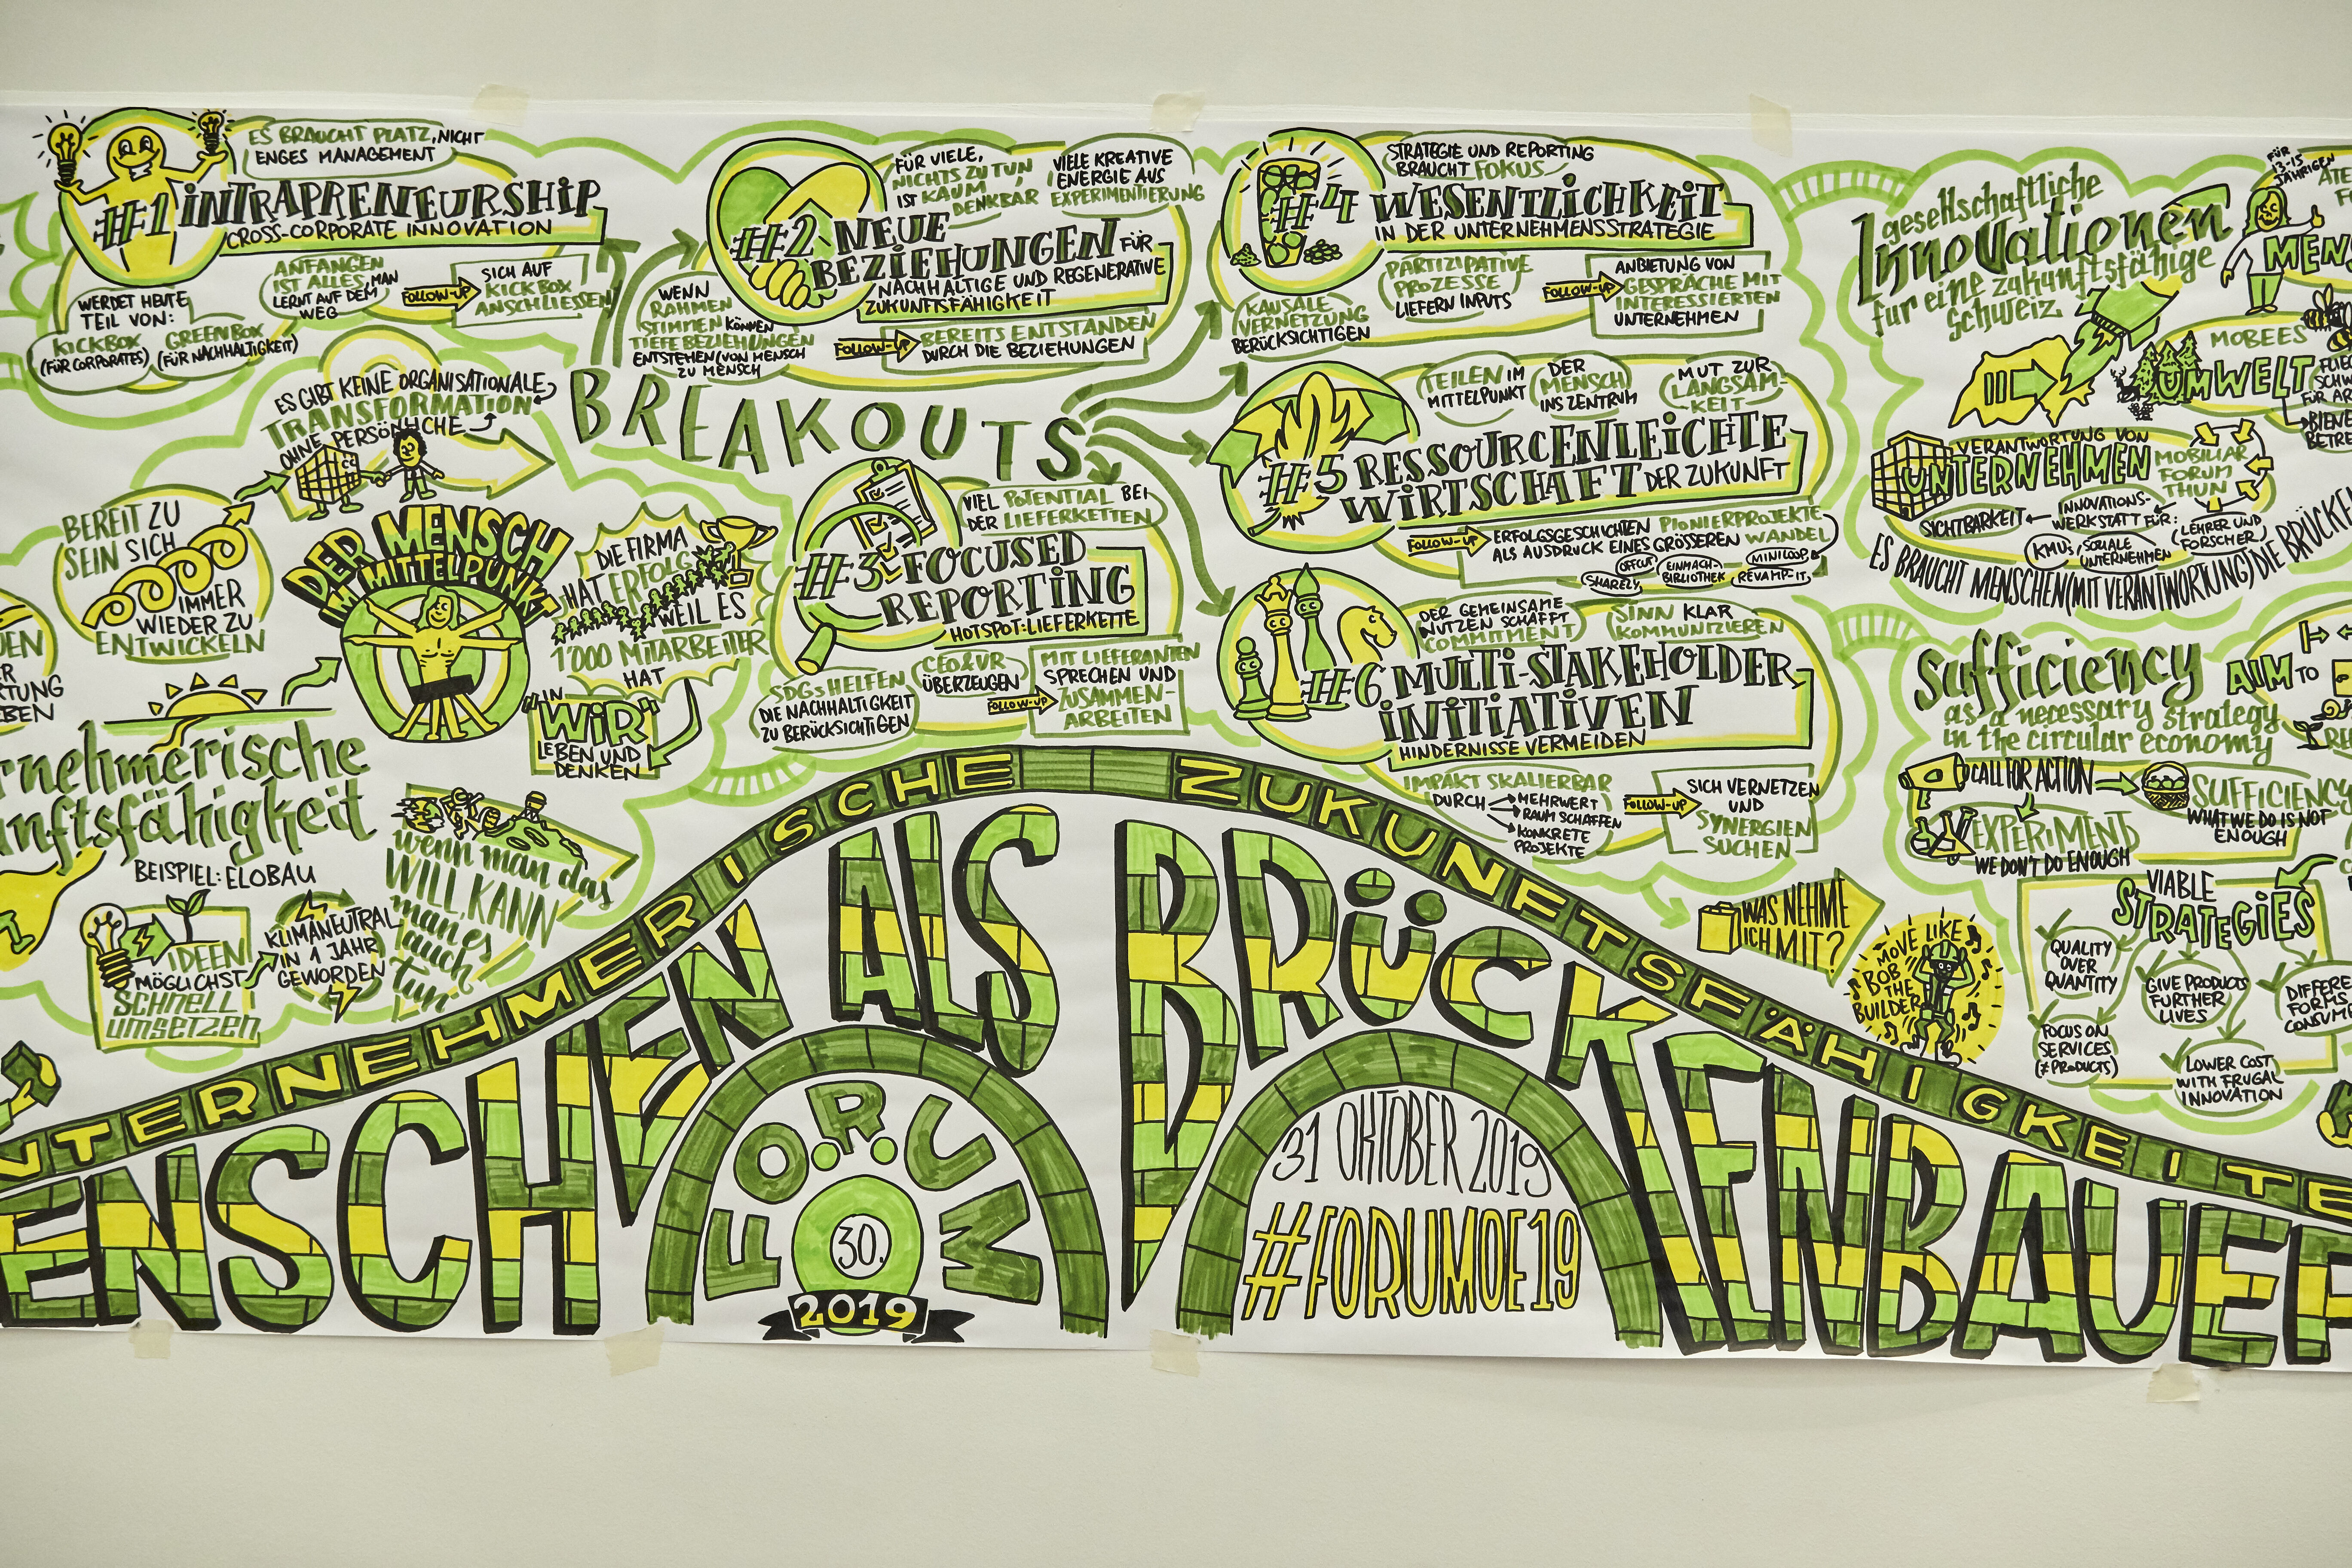 ES BRAUCHT PLATZ, NICHT
ENGES MANAGEMENT
#1 INTRAPRENEURSHIP
CROSS-CORPORATE INNOVATION
WERDET HEUTE
TEIL VON:
KICKBOX
(FÜR CORPORATES)
GREENBOX
(FÜR NACHHALTIGKEIT)
ANFANGEN
IST ALLES, MAN
LERNT AUF DEM
WEG
FOLLOW-UP
SICH AUF
KICKBOX
ANSCHLIESSEN
FÜR VIELE,
NICHTS ZU TUN
IST KAUM
DENKBAR
VIELE KREATIVE
ENERGIE AUS
EXPERIMENTIERUNG
#2 NEUE
BEZIEHUNGEN FÜR
NACHHALTIGE UND REGENERATIVE
ZUKUNFTSFÄHIGKEIT
WENN
RAHMEN
STIMMEN KÖNNEN
TIEFE BEZIEHUNGEN
ENTSTEHEN (VON MENSCH
ZU MENSCH
FOLLOW-UP
BEREITS ENTSTANDEN
DURCH DIE BEZIEHUNGEN
STRATEGIE UND REPORTING
BRAUCHT FOKUS
#4 WESENTLICHKEIT
IN DER UNTERNEHMENSSTRATEGIE
KAUSALE
VERNETZUNG
BERÜCKSICHTIGEN
PARTIZIPATIVE
PROZESSE
LIEFERN INPUTS
FOLLOW-UP
ANBIETUNG VON
GESPRÄCHE MIT
INTERESSIERTEN
UNTERNEHMEN
BREAKOUTS
VIEL POTENTIAL BEI
DER LIEFERKETTEN
#3 FOCUSED
REPORTING
HOTSPOT: LIEFERKETTE
SDGs HELFEN
DIE NACHHALTIGKEIT
ZU BERÜCKSICHTIGEN
CEO & VR
ÜBERZEUGEN
FOLLOW-UP
MIT LIEFERANTEN
SPRECHEN UND
ZUSAMMEN-
ARBEITEN
TEILEN IM
MITTELPUNKT
DER
MENSCH
INS ZENTRUM
MUT ZUR
LANGSAM-
KEIT
#5 RESSOURCENLEICHTE
WIRTSCHAFT DER ZUKUNFT
FOLLOW-UP
ERFOLGSGESCHICHTEN PIONIERPROJEKTE
ALS AUSDRUCK EINES GRÖSSEREN WANDEL
SHARELY
OFFCUT
EINMACH-
BIBLIOTHEK
MINILOOP
REVAMP-IT
DER GEMEINSAME
NUTZEN SCHAFFT
COMMITMENT
SINN KLAR
KOMMUNIZIEREN
#6 MULTI-STAKEHOLDER
INITIATIVEN
HINDERNISSE VERMEIDEN
IMPAKT SKALIERBAR
DURCH
MEHRWERT
RAUM SCHAFFEN
KONKRETE
PROJEKTE
FOLLOW-UP
SICH VERNETZEN
UND
SYNERGIEN
SUCHEN
WAS NEHME
ICH MIT?
ES GIBT KEINE ORGANISATIONALE
TRANSFORMATION
OHNE PERSÖNLICHE
BEREIT ZU
SEIN SICH
IMMER
WIEDER ZU
ENTWICKELN
DER MENSCH
IM MITTELPUNKT
DIE FIRMA
HAT ERFOLG
WEIL ES
1'000 MITARBEITER
HAT
IN
"WIR"
LEBEN UND
DENKEN
rnehmerische
nftsfähigkeit
BEISPIEL: ELOBAU
IDEEN
MÖGLICHST
SCHNELL
UMSETZEN
KLIMANEUTRAL
IN 1 JAHR
GEWORDEN
wenn man das
WILL, KANN
man es
auch
tun
gesellschaftliche
Innovationen
für eine zukunftsfähige
Schweiz
FÜR
13-15
JÄHRIGEN
MEN
MOBEES
UMWELT
VERANTWORTUNG VON
UNTERNEHMEN
MOBILIAR
FORUM
THUN
SICHTBARKEIT
INNOVATIONS-
WERKSTATT FÜR:
KMUs
SOZIALE
UNTERNEHMEN
LEHRER UND
FORSCHER
ES BRAUCHT MENSCHEN (MIT VERANTWORTUNG) DIE BRÜCKEN
Sufficiency
as a necessary strategy
in the circular economy
AIM TO
CALL FOR ACTION
EXPERIMENT
WE DON'T DO ENOUGH
SUFFICIENCY
WHAT WE DO IS NOT
ENOUGH
VIABLE
STRATEGIES
QUALITY
OVER
QUANTITY
GIVE PRODUCTS
FURTHER
LIVES
FOCUS ON
SERVICES
(≠ PRODUCTS)
LOWER COST
WITH FRUGAL
INNOVATION
MOVE LIKE
BOB
THE
BUILDER
NTERNEHMERISCHE ZUKUNFTSFÄHIGKEITE
ENSCHEN ALS BRÜCKENBAUER
FO.R.UM
30.
2019
31 OKTOBER 2019
#FORUMOE19